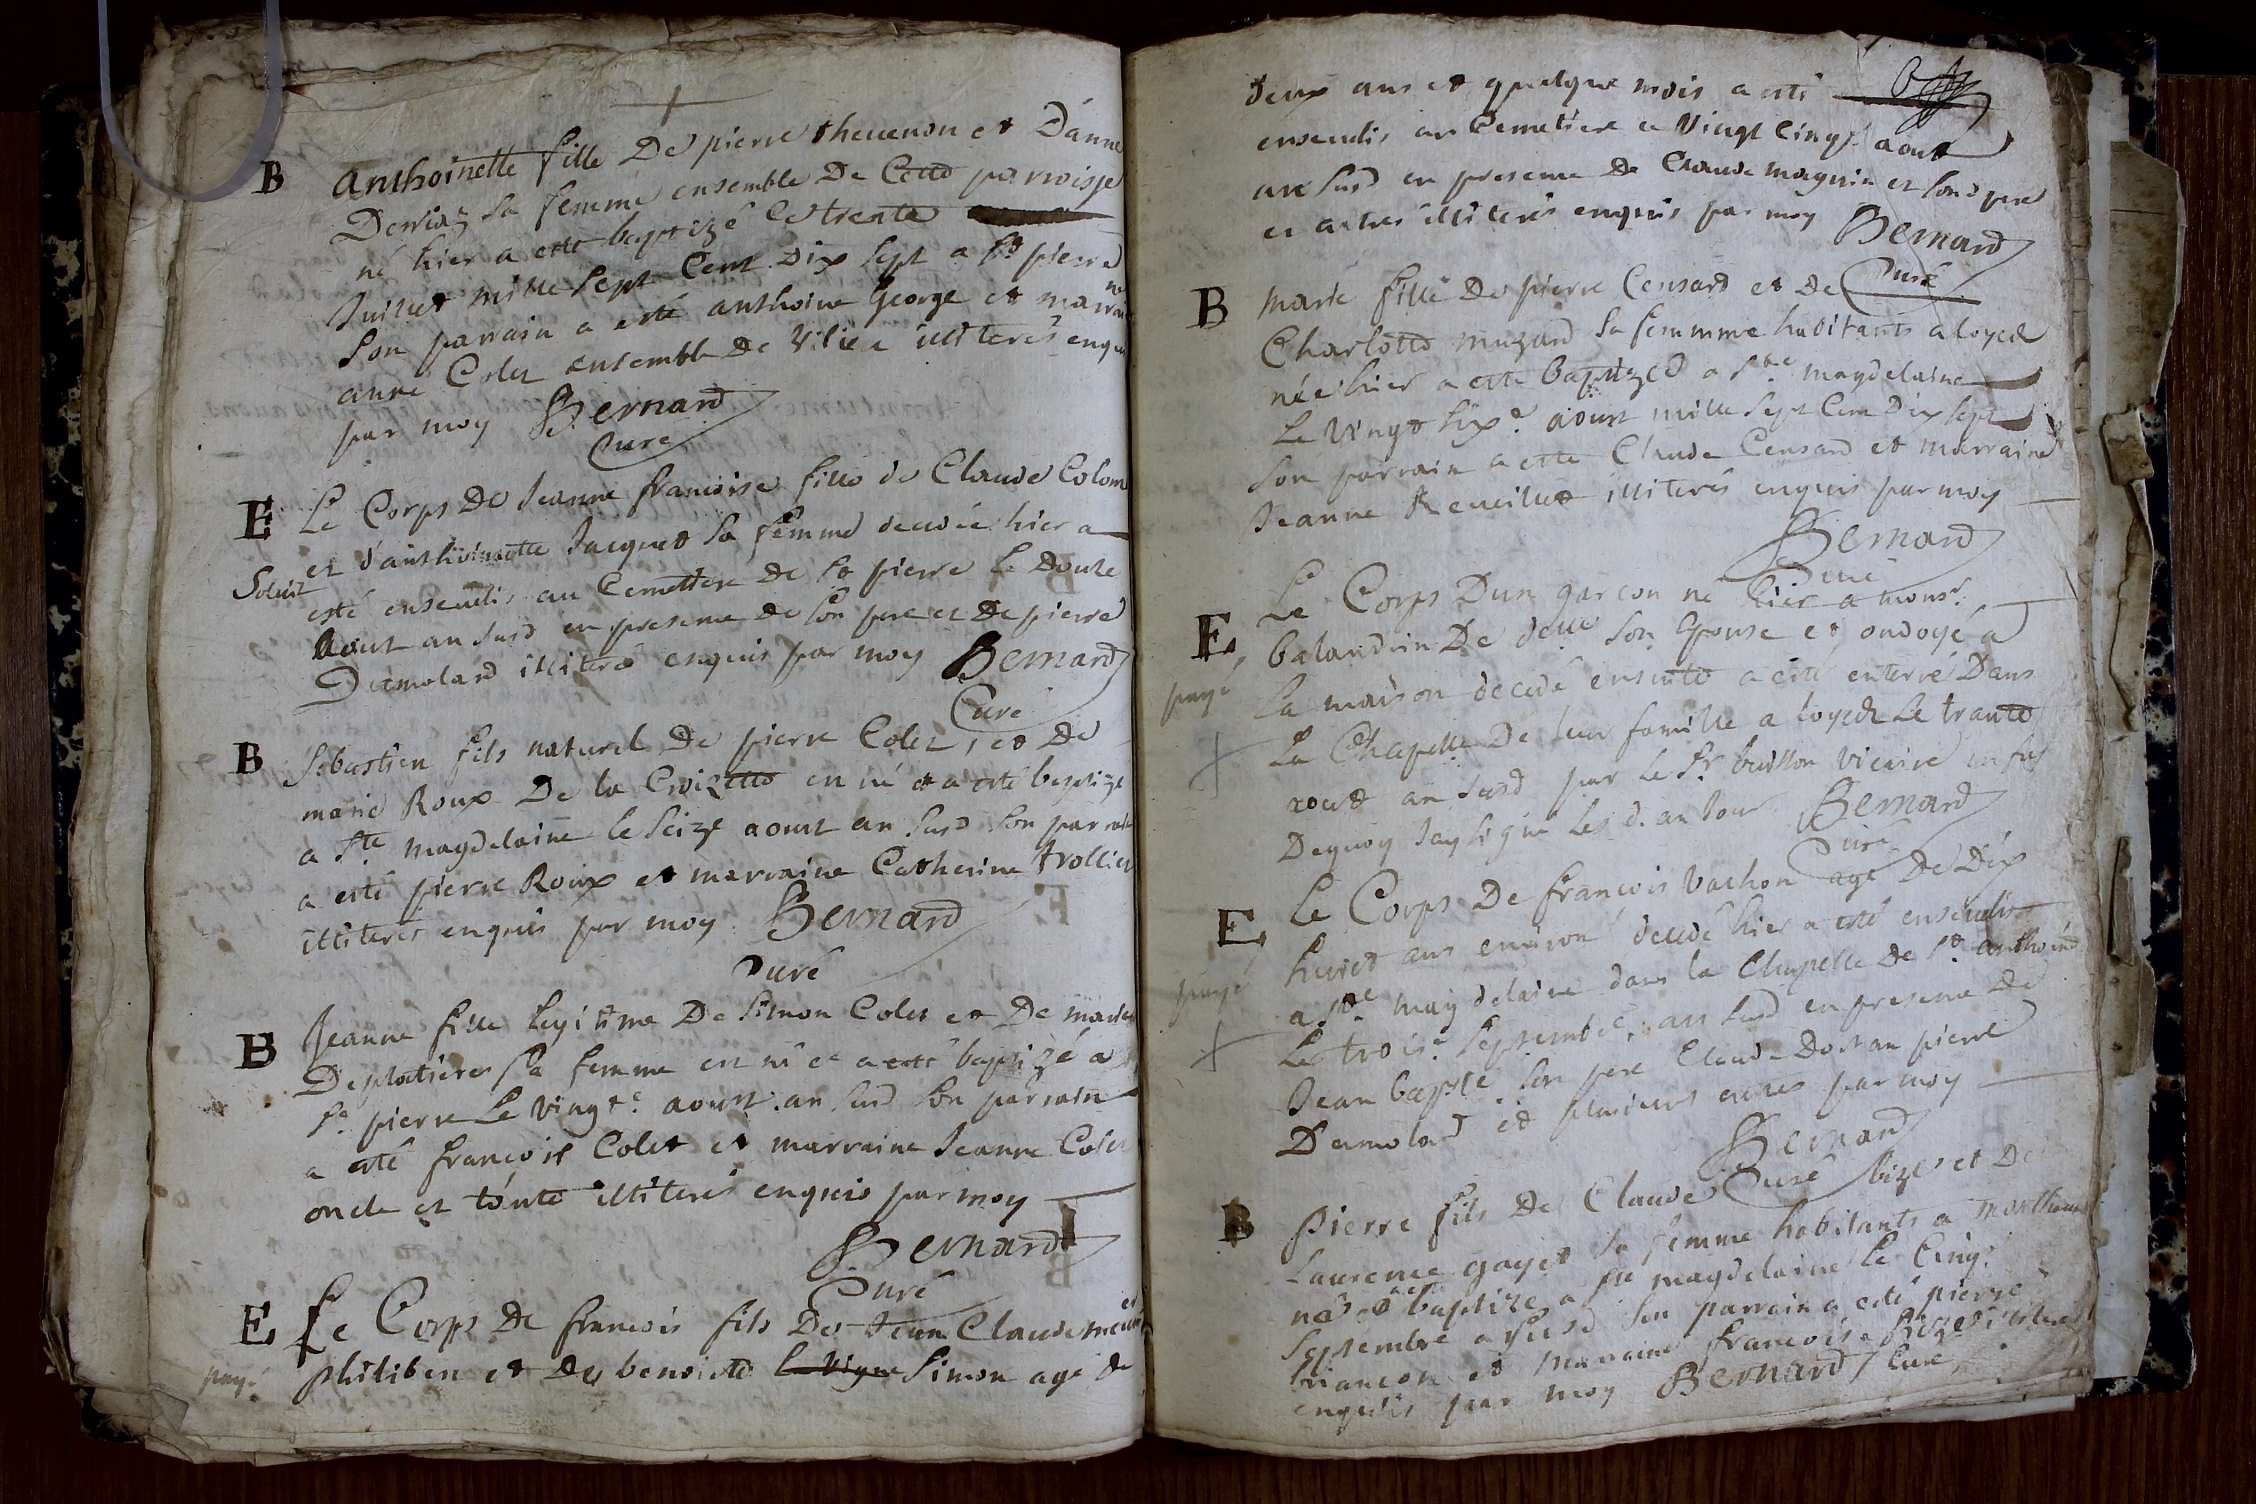 B Anthoinette fille De pierre thevenon et Danne
Derviaz sa femme ensemble De Cette parroisse
né hier a esté baptizé le trente
Juillet mille sept Cent Dix sept a St pierre
son parrain a esté anthoine George et marraine
anne Colet ensemble De Vilieu illiterés enquis
par moy Bernard
Curé
E Le Corps De Jeanne francoise fille de Claude Colom
et d'anthoinette Jacquet sa femme decedée hier a
Soluit
esté enseveli au Cemettiere De St pierre le Douze
Aoust an susd en presence de son pere et De pierre
Dumolard illiterés enquis par moy Bernard
Curé
B Sebastien fils naturel De pierre Colet, et De
marie Roux De la Croizette en né et a esté baptizé
a Ste magdelaine le seize aoust an susd son parrain
a esté pierre Roux et marraine Catherine trollier
illiterés enquis par moy Bernard
Curé
B Jeanne fille legitime De simon Colet et De
Desplatieres sa femme est né et a esté baptizé a
St pierre Le Vingte aoust an susd son parrain
a esté francois Colet et marraine Jeanne Colet
oncle et tante illiterés enquis par moy
Bernard
Curé
E Le Corps De francois fils De Jean Claude
payé
philiben et De benoiste simon agé de
deux ans et quelque mois a esté
enseveli au Cemetiere le Vingt Cinq aoust
an susd en presence De Claude magnin et son pere
et autres illiterés enquis par moy Bernard
Curé
B Marie fille De pierre Censard et De
Charlotte muzard sa femmme habitants a loyed
née hier a esté baptized a Ste magdelaine
Le Vingt sixe aoust mille sept Cent Dix sept
son parrain a esté Claude Censard et marraine
Jeanne Reveillet illiterés enquis par moy
Bernard
Curé
E Le Corps Dun garcon né hier a monsr.
balandrin De delle son Epouse et ondoyé a
payé
La maison decedé ensuitte a esté enterré Dans
La Chapelle De leur famille a loyed Le trante
aoust an susd par Le Sr buisson vicaire
Dequoy Jay signé les d. an Jour Bernard
Curé
E Le Corps De francois Vachon agé De Dix
huict ans environ decedé hier a esté enseveli
payé
a Ste magdelaine dans la Chapelle De St anthoine
Le troise septembre, an susd en presence De
Jean bapste son pere Claude Dostan pierre
Dumolard et plusieurs autres par moy
Bernard
Curé
B Pierre fils De Claude bizet et De
Laurence gayet sa femme habitants a
né et a esté baptize a Ste magdelaine Le Cinq
septembre an susd son parrain a esté pierre
briancon et marraine francoise bizet illiteres
enquis par moy Bernard Curé